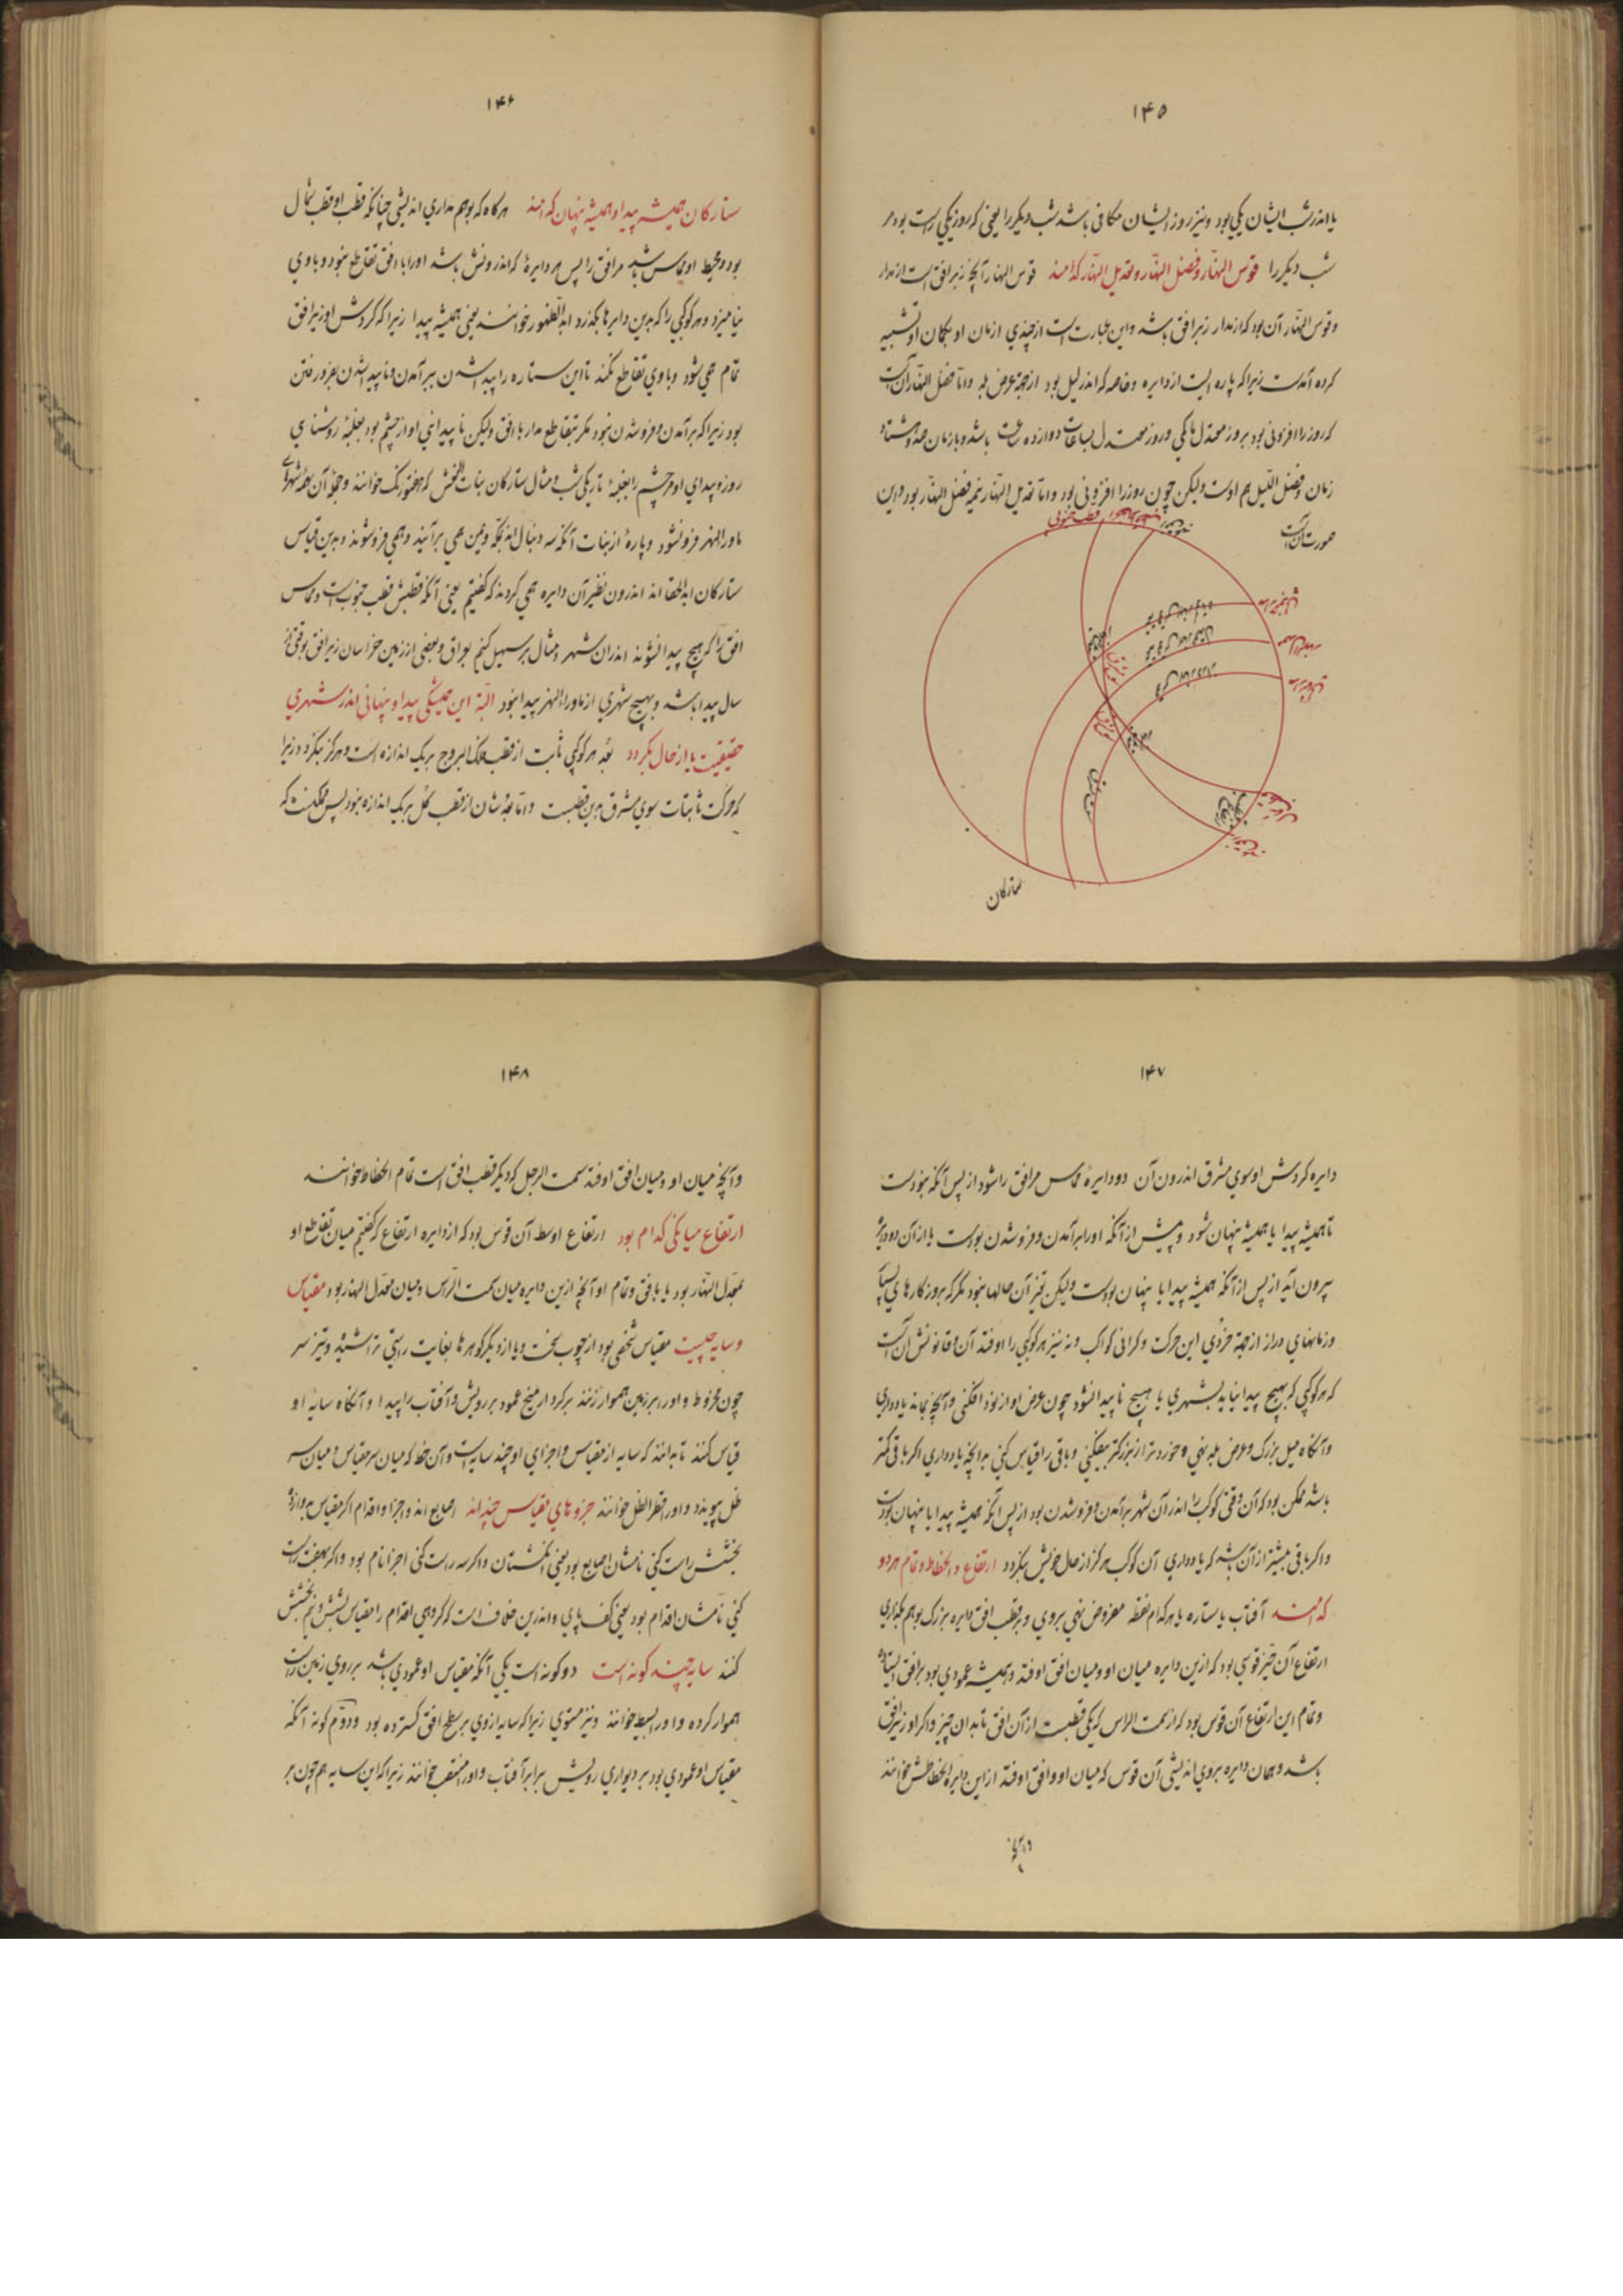 ۱۴۵
یا اندر شب ایشان یکی بود و نیز روز ایشان مکافی باشد شب دیگر را یعنی که روز یکی راست بود مر
شب دیگر را قوس النهار و فضل النهار و تعدیل النهار کدامند قوس النهار آنچه زبر افق است از مدار
و قوس النهار آن بود که از مدار زبر افق باشد و این عبارت است از چندی ازمان او بکمان او تشبیه
کرده آمدست زیراکه پاره ایست از دایره و خاصه که اندر لیل بود از جهة عرض بلد و اما فضل النهار آنست
که روز را افزونی بود بروز معتدل یا کمی و روز معتدل بساعات دوازده ساعت باشد و بازمان صد و هشتاد
زمان و فضل اللیل هم اوست ولیکن چون روز را افزونی بود و اما تعدیل النهار نیمه فضل النهار بود و این
صورت آنست
ستارکان
۱۴۶
ستارکان همیشه پیدا و همیشه پنهان که امند هرگاه که بوهم مداری اندیشی چنانکه قطب او قطب شمال
بود و محیط او مماس باشد مر افق را پس هر دایرهٔ که اندرونش باشد او را با افق تقاطع نبود و با وی
نیامیزد و هر کوکبی را که بدین دایرها بگذرد ابدالظهور خوانند یعنی همیشه پیدا زیرا که گردش او زبر افق
تمام همی شود و با وی تقاطع نکند تا این ستاره را پیدا شدن ببرآمدن و ناپیدا شدن بفرورفتن
بود زیراکه برآمدن و فروشدن نبود مکر بتقاطع مدار با افق ولیکن ناپیدائی او از چشم بود بغلبهٔ روشنایی
روز و پیدای او مر چشم را بغلبهٔ تاریکی شب و مثال ستارکان بنات النعش که هفتورنک خوانند و جملهٔ آن بهمه شهرهای
ماورالنهر فرونشود و پارهٔ از بنات آنکه سه دنبال اند بمکه و یمن همی برآیند و همی فروشوند و بدین قیاس
ستارکان ابدالخفا اند اندرون نظیر آن دایره همی کردند که کفتیم یعنی آنکه قطبش قطب جنوبست و مماس
افق را که هیچ پیدا نشوند اندران شهر و مثال بر سهیل کنیم بعراق و بعضی از زمین خراسان زبر افق بوقتی از
سال پیدا باشد و بهیچ شهری از ماوراالنهر پیدا نبود البته این همیشکی پیدا و پنهانی اندر شهری
حقیقیت یا از حال بکردد بعد هر کوکبی ثابت از قطب فلک البروج بریک اندازه است و هرگز نکردد زیرا
که حرکت ثابتات سوی مشرق برین قطبست و اما بعدشان از قطب کل بریک اندازه نبود پس ممکنست که
۱۴۷
دایره کردش او سوی مشرق اندرون آن دو دایرهٔ مماس مر افق را شود از پس آنکه نبودست
تا همیشه پیدا یا همیشه پنهان شود و پیش از آنکه او را برآمدن و فروشدن بودست یا از آن دو دایره
بیرون آید از پس از آنکه همیشه پیدا یا پنهان بودست ولیکن تغیر آن حالها نبود مکر که بروزکارهای بسیار
و زمانهای دراز از جهة خردی این حرکت و کرانی کواکب و نه نیز هر کوکبی را اوفتد آن و قانونش آنست
که هر کوکبی که بهیچ پیدا نیاید بشهری یا هیچ ناپیدا نشود چون عرض او از نود افکنی و آنچه بماند یاد داری
و آنکاه میل بزرک و عرض بلد بنهی و خوردتر از بزرکتر بیفکنی و باقی را قیاس کنی بدانچه یاد داری اکر باقی کمتر
باشد ممکن بود که آن وقتی کوکب را اندر آن شهر برآمدن و فروشدن بود از پس آنکه همیشه پیدا یا پنهان بودست
و اکر باقی بیشتر از آن باشد که یاد داری آن کوکب هرگز از حال خویش بنکردد ارتفاع و انحطاط و تمام هر دو
که امند آفتاب یا ستاره یا هر کدام نقطه مفروض نهی بروی و بر قطب افق دایره بزرک بوهم بکذاری
ارتفاع آن چیز قوسی بود که ازین دایره میان او و میان افق اوفتد و همیشه عمودی بود بر افق ایستاده
و تمام این ارتفاع آن قوس بود که از سمت الراس که یکی قطبست از آن افق تا بدان چیز و اکر او زیر افق
باشد و همان دایره بروی اندیشی آن قوس که میان او و افق اوفتد از این دایره انحطاطش خوانند
و آنچه
۱۴۸
و آنچه میان او و میان افق اوفتد سمت الرجل که دیکر قطب افق است تمام انحطاط خوانند
ارتفاع میانکی کدام بود ارتفاع اوسط آن قوس بود که از دایره ارتفاع که کفتیم میان تقاطع او
بمعدل النهار بود یا با افق و تمام او آنچه ازین دایره میان سمت الراس و میان معدل النهار بود مقیاس
و سایه چیست مقیاس شخصی بود از چوب سخت و یا از دیکر کوهرها بغایت راستی تراشیده و تیز سر
چون مخروط و او را بر زمین هموار زنند برکردار میخ عمود بر رویش و آفتاب را پیدا و آنکاه سایه او
قیاس کنند تا بدانند که سایه از مقیاس و اجزای او چند سایه است و آن خط که میان سر مقیاس و میان سر
ظل پیوندد و او را قطر الظل خوانند جزوهای مقیاس چند اند اصابع اند و اجزا و اقدام اکر مقیاس بدوازده
بخشش راست کنی نامشان اصابع بود یعنی انکشتان و اکر سه راست کنی اجزا نام بود و اکر بهفت راست
کنی نامشان اقدام بود یعنی کف پای و اندرین خلاف است که کروهی اقدام را مقیاس بشش و نیم بخشش
کنند سایه چند کونه است دو کونه است یکی آنکه مقیاس او عمودی باشد بر روی زمین راست
هموار کرده و او را بسیط خوانند و نیز مستوی زیرا که سایه ازوی بر سطح افق کسترده بود و دوم کونه آنکه
مقیاس او عمودی بود بر دیواری رویش برابر آفتاب و او را منتصب خوانند زیرا که این سایه هم چون بر